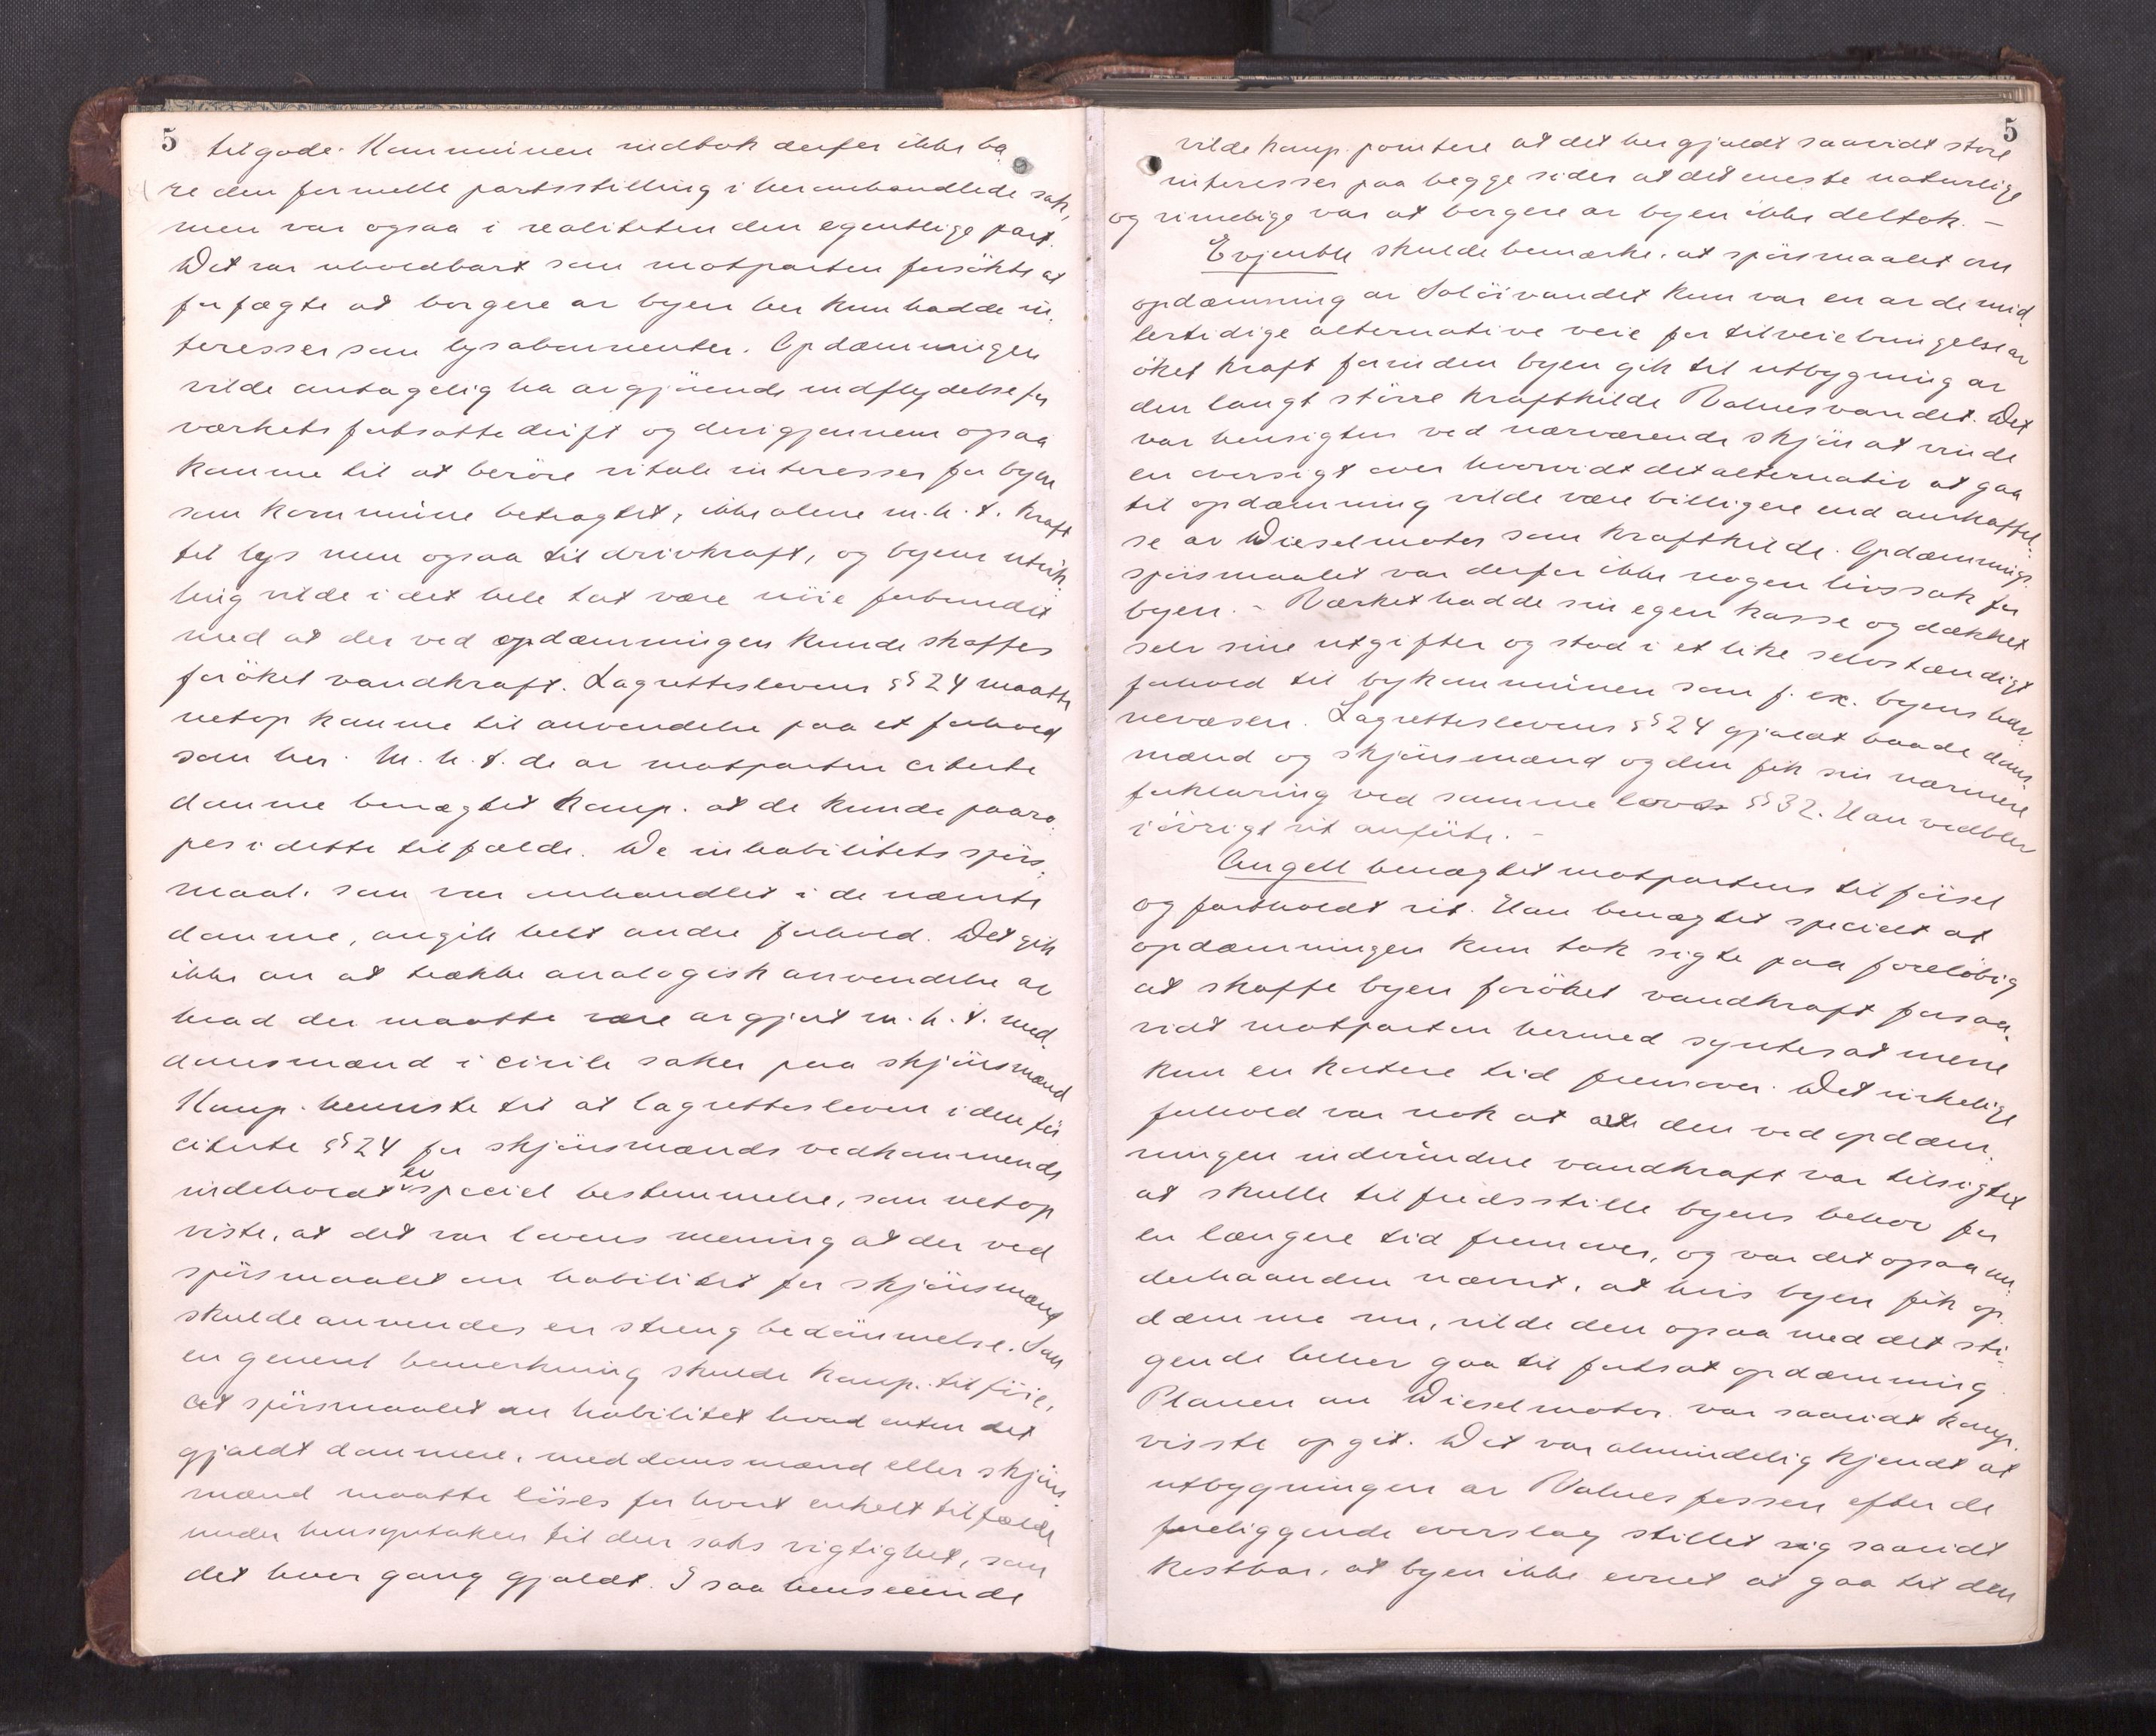 5
tilgode. Kommunen indtok derfor ikke ba
re den formelle partsstilling i heromhandlede sak,
men var ogsaa i realiteten den egentlige part.
Det var uholdbart som motparten forsökte at
forfægte at borgere av byen her kun hadde in-
teresser som lysabonnenter. Opdæmningen
vilde antagelig ha avgjörende indflydelse for
verkets fortsatte drift og derigjennem ogsaa
komme til at beröre vitale interesser for byen
som kommune betragtet, ikke alene m.h.t. kraft
til lys men ogsaa til drivkraft, og byens utvik-
ling vilde i det hele tat være nöie forbundet
med at der ved opdæmningen kunde skaffes
foröket vandkraft. Lagretteslovens §§ 24 maatte
netop komme til anvendelse paa et forhold
som her. M.h.t. de av motparten citerte
domme benægtet komp. at de kunde paaro-
pes i dette tilfælde. De inhabilitetsspörs-
maal, som var omhandlet i de nævnte
domme, angik helt andre forhold. Det gik
ikke an at trække analogisk anvendelse av
hvad der maatte være avgjort m.h.t. med-
domsmænd i civile saker paa skjönsmænd
Komp. henviste til at lagrettesloven i den för
citerte §§ 24 for skjönsmænds vedkommende
indeholdt en speciel bestemmelse, som netop
viste, at det var lovens mening at der ved
spörsmaalet om habilitet for skjönsmænd
skulde anvendes en streng bedömmelse. Som
en generel bemerkning skulde komp. tilföie,
at spörsmaalet om habilitet hvad enten det
gjældt dommere, meddomsmænd eller skjöns-
mænd maatte löses for hvert enkelt tilfælde
under hensyntaken til den saks vigtighet, som
det hver gang gjaldt. I saa henseende
5
vilde komp. pointere at det her gjaldt saavidt store
interesser paa begge sider at det eneste naturlige
og rimelige var at borgere av byen ikke deltok. –
Evjenth skulde bemærke, at spörsmaalet om
opdæmning av Solöivandet kun var en av de mid-
lertidige alternative veie for tilveiebringelse av
öket kraft forinden byen gik til utbygning av
den langt större kraftkilde Valnesvandet. Det
var hensigten ved nærværende skjön at vinde
en oversigt over hvorvidt det alternativ at gaa
til opdæmning vilde være billigere end anskaffel-
se av Dieselmotor som kraftkilde. Opdæmnings-
spörsmaalet var derfor ikke nogen livssak for
byen. – Værket hadde sin egen kasse og dækket
selv sine utgifter og stod i et like selvstændigt
forhold til bykommunen som f. ex. byens hav-
nevæsen. Lagretteslovens §§ 24 gjaldt baade doms-
mænd og skjönsmænd og den fik sin nærmere
forklaring ved samme lovs §§ 32. Han vedblev
iövrigt sit anförte. –
Angell benægtet motpartens tilföisel
og fastholdt sit. Han benægtet specielt at
opdæmningen kun tok sigte paa forelöbig
at skaffe byen foröket vandkraft forsaa-
vidt motparten hermed syntes at mene
kun en kortere tid fremover. Det virkelige
forhold var nok at den ved opdæm-
ningen indvundne vandkraft var tilsigtet
at skulle tilfredsstille byens behov for
en længere tid fremover, og var det ogsaa un-
derhaanden nævnt, at hvis byen fik op-
dæmme nu, vilde den ogsaa med det sti-
gende behov gaa til fortsat opdæmning.
Planen om Dieselmotor var saavidt komp.
visste opgit. Det var almindelig kjendt at
utbygningen av Valnesfossen efter de
foreliggende overslag stillet sig saavidt
kostbar, at byen ikke evnet at gaa til den